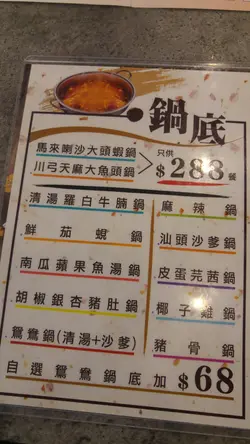 鍋底
馬來喇沙大頭蝦鍋
川弓天麻大魚頭鍋
只供
$283餐
清湯羅白牛腩鍋
麻辣鍋
鮮茄蜆鍋
汕頭沙爹鍋
南瓜蘋果魚湯鍋
皮蛋芫茜鍋
胡椒銀杏豬肚鍋
椰子雞鍋
鴛鴦鍋(清湯+沙爹)
豬骨鍋
自選鴛鴦鍋底加$68